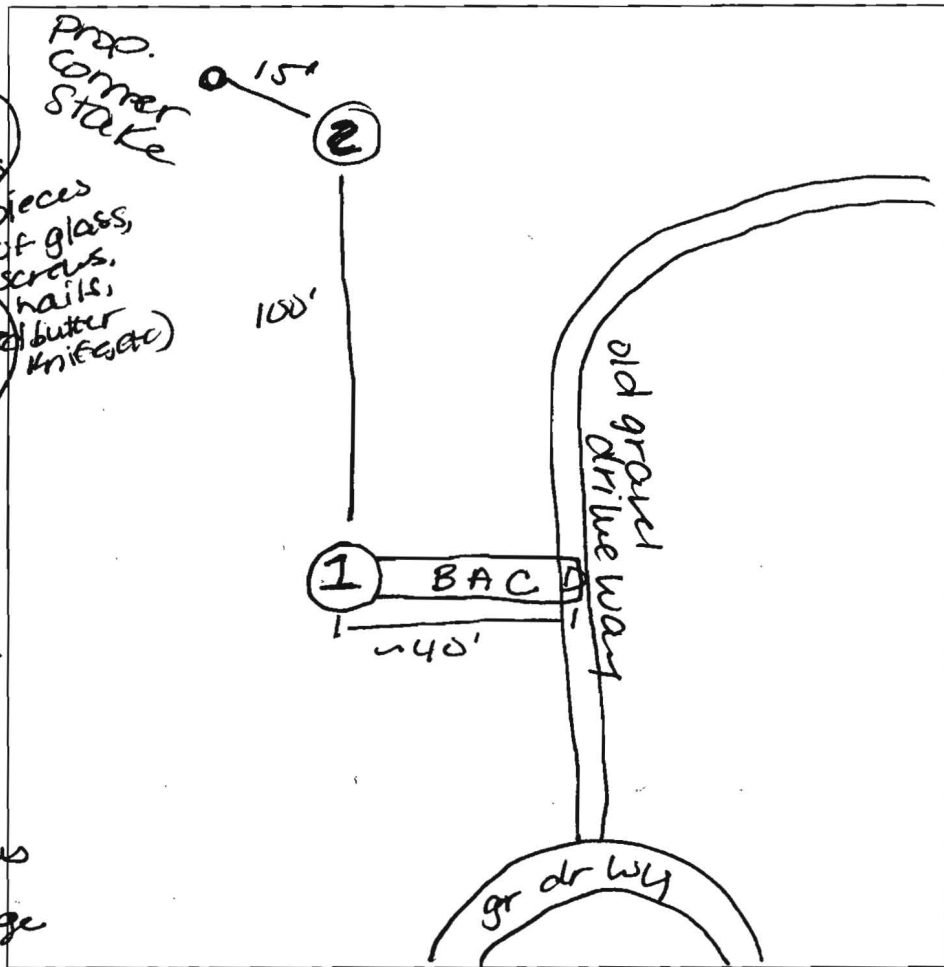 Prop.
Corner
Stake
15'
2
pieces
of glass,
screws,
nails,
butter
knife, etc)
100'
old gravel
driveway
1
B A C D
~40'
gr dr wy